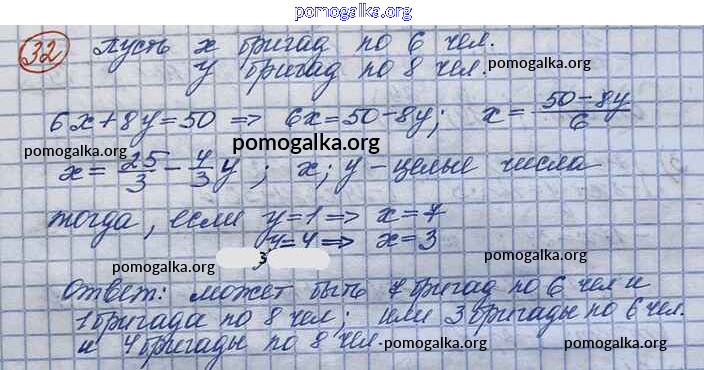 pomogalka.org
32 Пусть x бригад по 6 чел.
y бригад по 8 чел. pomogalka.org
6x+8y=50 => 6x=50-8y; x= 50-8y/6
pomogalka.org pomogalka.org
x= 25/3 - 4/3 y; x; y - целые числа
тогда, если y=1 => x=7
y=4 => x=3
3
pomogalka.org pomogalka.org
Ответ: может быть 7 бригад по 6 чел и
1 бригада по 8 чел; или 3 бригады по 6 чел.
и 4 бригады по 8 чел.
pomogalka.org pomogalka.org